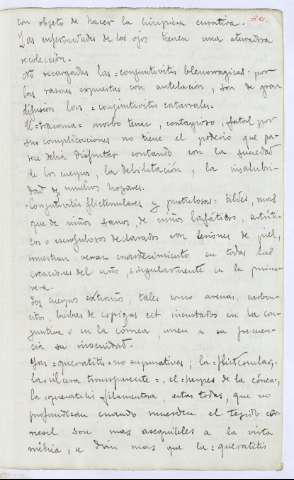 con objeto de hacer la limpieza curativa.
Las enfermedades de los ojos tienen una aterradora
recolección.
recargadas las =conjuntivitis blenorragicas= por
las razones expuestas con antelación, son de gran
difusion los =conjuntivitis catarrales.
El =tracoma= morbo tenaz, contagioso, fatal por
sus complicaciones no tiene el poderío que pa-
rece debia disfrutar contando con la suciedad
de los cuerpos, la debilitación, la insalubri-
dad de muchos hogares.
=Conjuntivitis flictenulares y pustulosas=
que de niños sanos, de niños linfáticos, artriti-
cos o escrofulosos declarados con lesiones de piel,
en todas las
estaciones del año, singularmente en la prima-
vera.
Los cuerpos extraños, tales como arenas, carbon-
citos, briznas de espigas ect incrustados en la con-
juntiva o en la córnea, unen a su frecuen-
cia su inocuidad.
Las =queratitis= no supurativas; la flictenular,
la =ulcera transparente=, el =herpes de la córnea,
la queratitis filamentosa, estas todas, que no
profundizan cuando muerden el tejido cor-
neal son mas asequibles a la vista
médica, a dian mas que la =queratitis